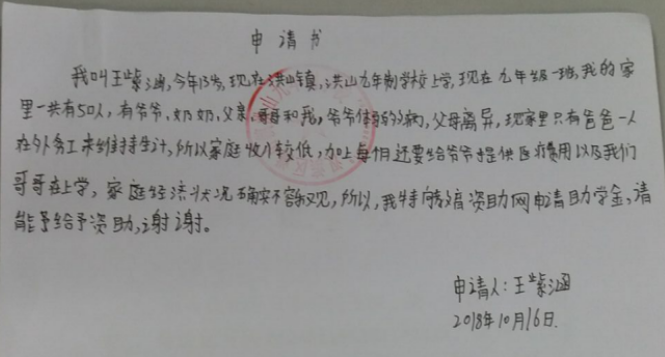 申请书
我叫王紫涵,今年15岁,现在洪山镇,洪山九年制学校上学,现在九年级一班,我的家
里一共有5口人,有爷爷、奶奶、父亲、哥哥和我,爷爷体弱多病,父母离异,现家里只有爸爸一人
在外务工来维持生计,所以家庭收入较低,加上每月还要给爷爷提供医疗费用以及我们
哥哥在上学,家庭经济状况确实不容乐观,所以,我特向教育资助网申请助学金,请
能予给予资助,谢谢。
申请人:王紫涵
2018年10月16日.